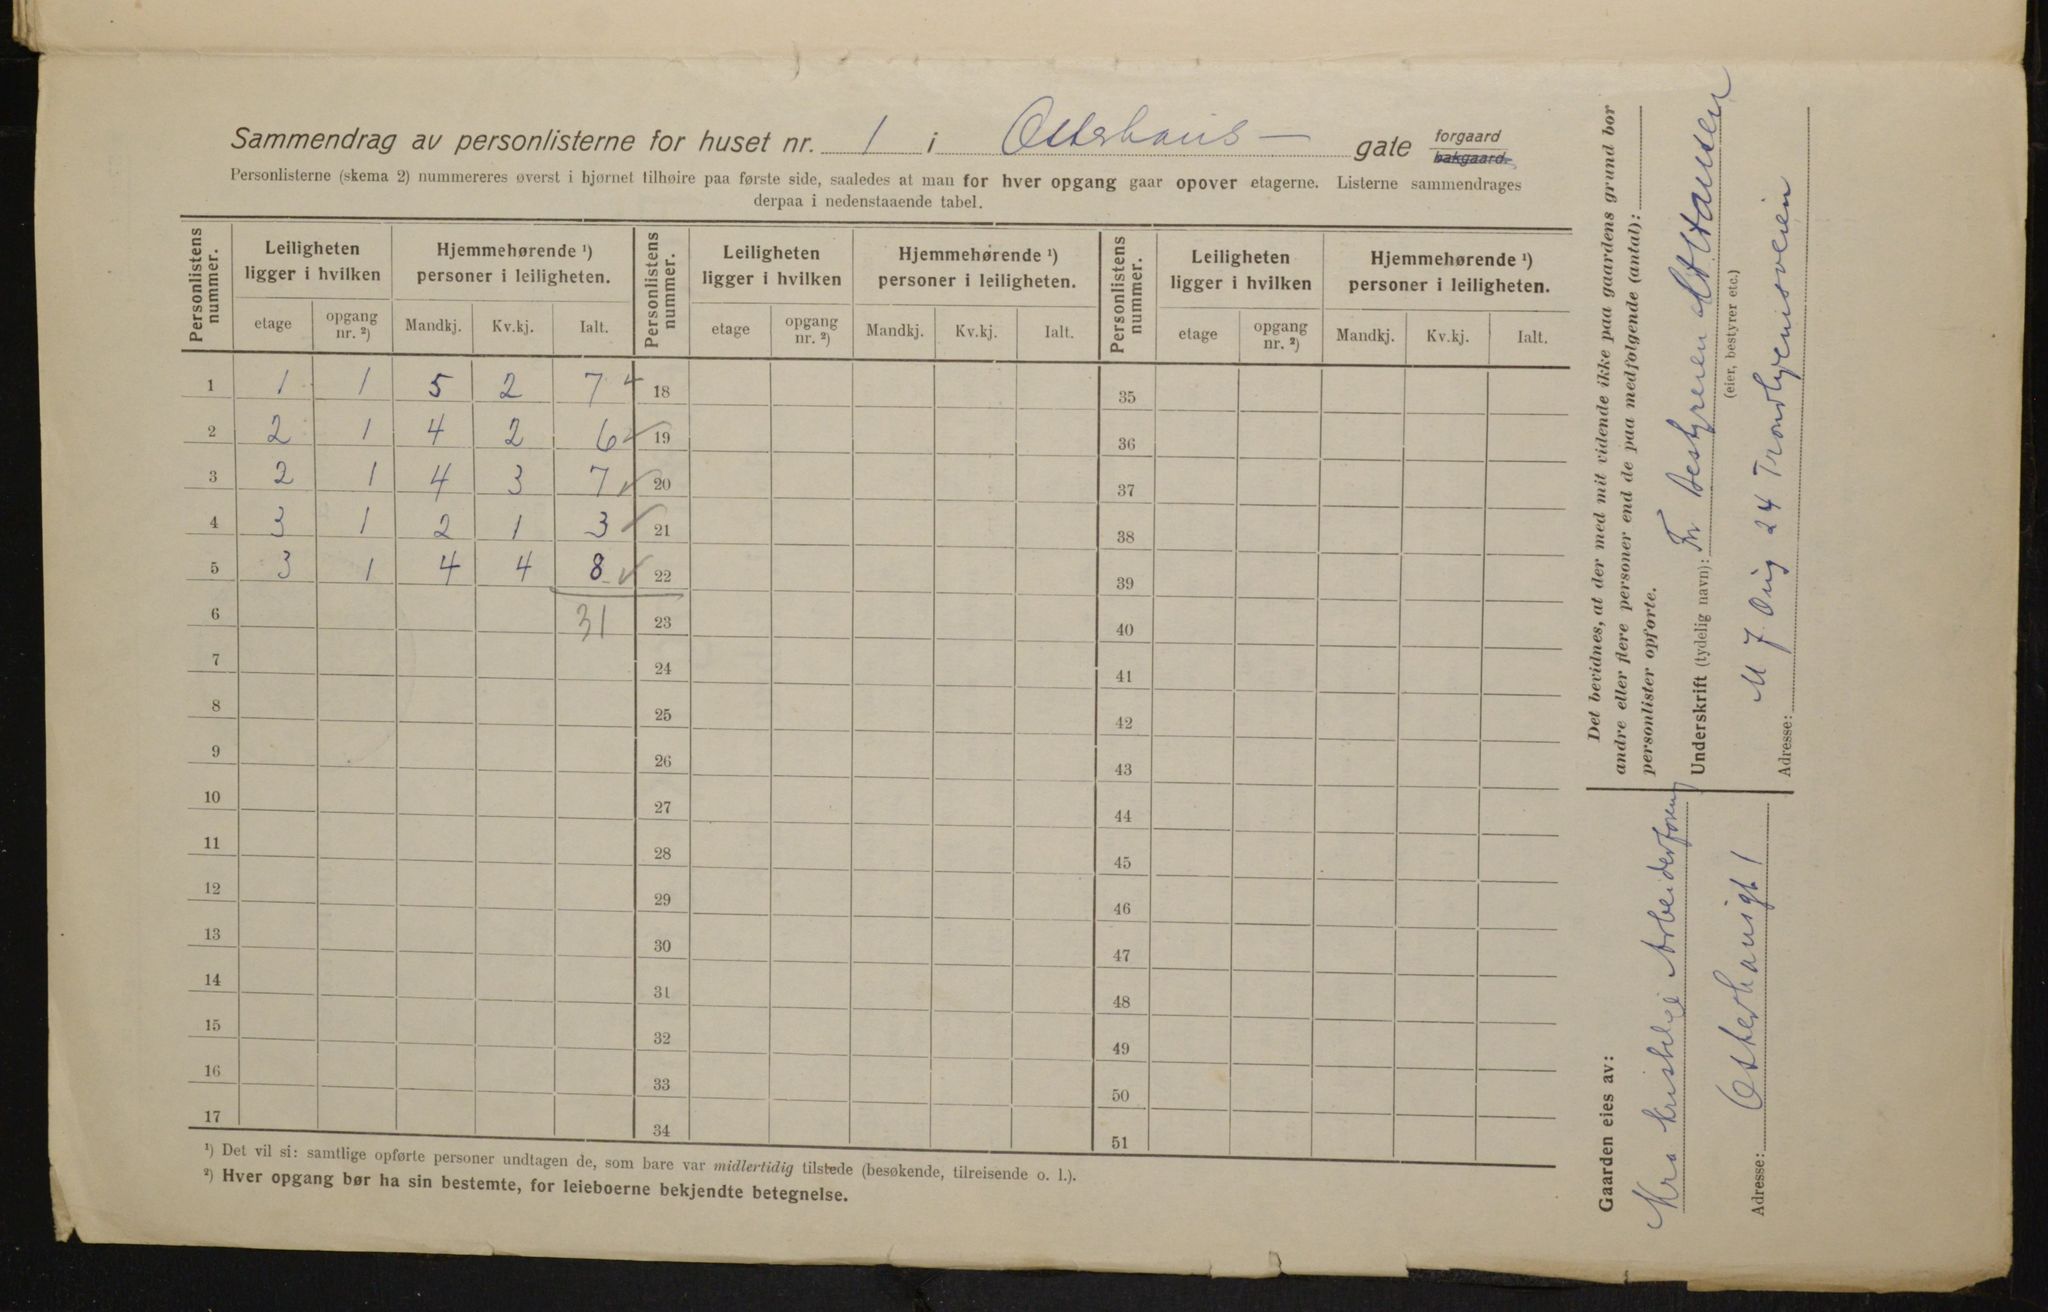 Sammendrag av personlisterne for huset nr. 1 i Osterhaus— gate forgaard bakgaard.
Personlisterne (skema 2) nummereres øverst i hjørnet tilhøire paa første side, saaledes at man for hver opgang gaar opover etagerne. Listerne sammendrages
derpaa i nedenstaaende tabel.
Personlistens nummer. Leiligheten ligger i hvilken Hjemmehørende ¹) personer i leiligheten. Personlistens nummer. Leiligheten ligger i hvilken Hjemmehørende ¹) personer i leiligheten. Personlistens nummer. Leiligheten ligger i hvilken Hjemmehørende ¹) personer i leiligheten.
etage opgang nr. ²) Mandkj. Kv.kj. Ialt. etage opgang nr. ²) Mandkj. Kv.kj. Ialt. etage opgang nr. ²) Mandkj. Kv.kj. Ialt.
1 1 1 5 2 7 18 35
2 2 1 4 2 6 19 36
3 2 1 4 3 7 20 37
4 3 1 2 1 3 21 38
5 3 1 4 4 8 22 39
6 31 23 40
7 24 41
8 25 42
9 26 43
10 27 44
11 28 45
12 29 46
13 30 47
14 31 48
15 32 49
16 33 50
17 34 51
¹) Det vil si: samtlige opførte personer undtagen de, som bare var midlertidig tilstede (besøkende, tilreisende o. l.).
²) Hver opgang bør ha sin bestemte, for leieboerne bekjendte betegnelse.
Det bevidnes, at der med mit vidende ikke paa gaardens grund bor
andre eller flere personer end de paa medfølgende (antal):
personlister opførte.
Underskrift (tydelig navn): For Bestyreren Hansen
(eier, bestyrer etc.)
24 Trondhjemsveien
Adresse:
Gaarden eies av:
Kra kristelige Arbeiderforening
Adresse: Osterhausgt 1